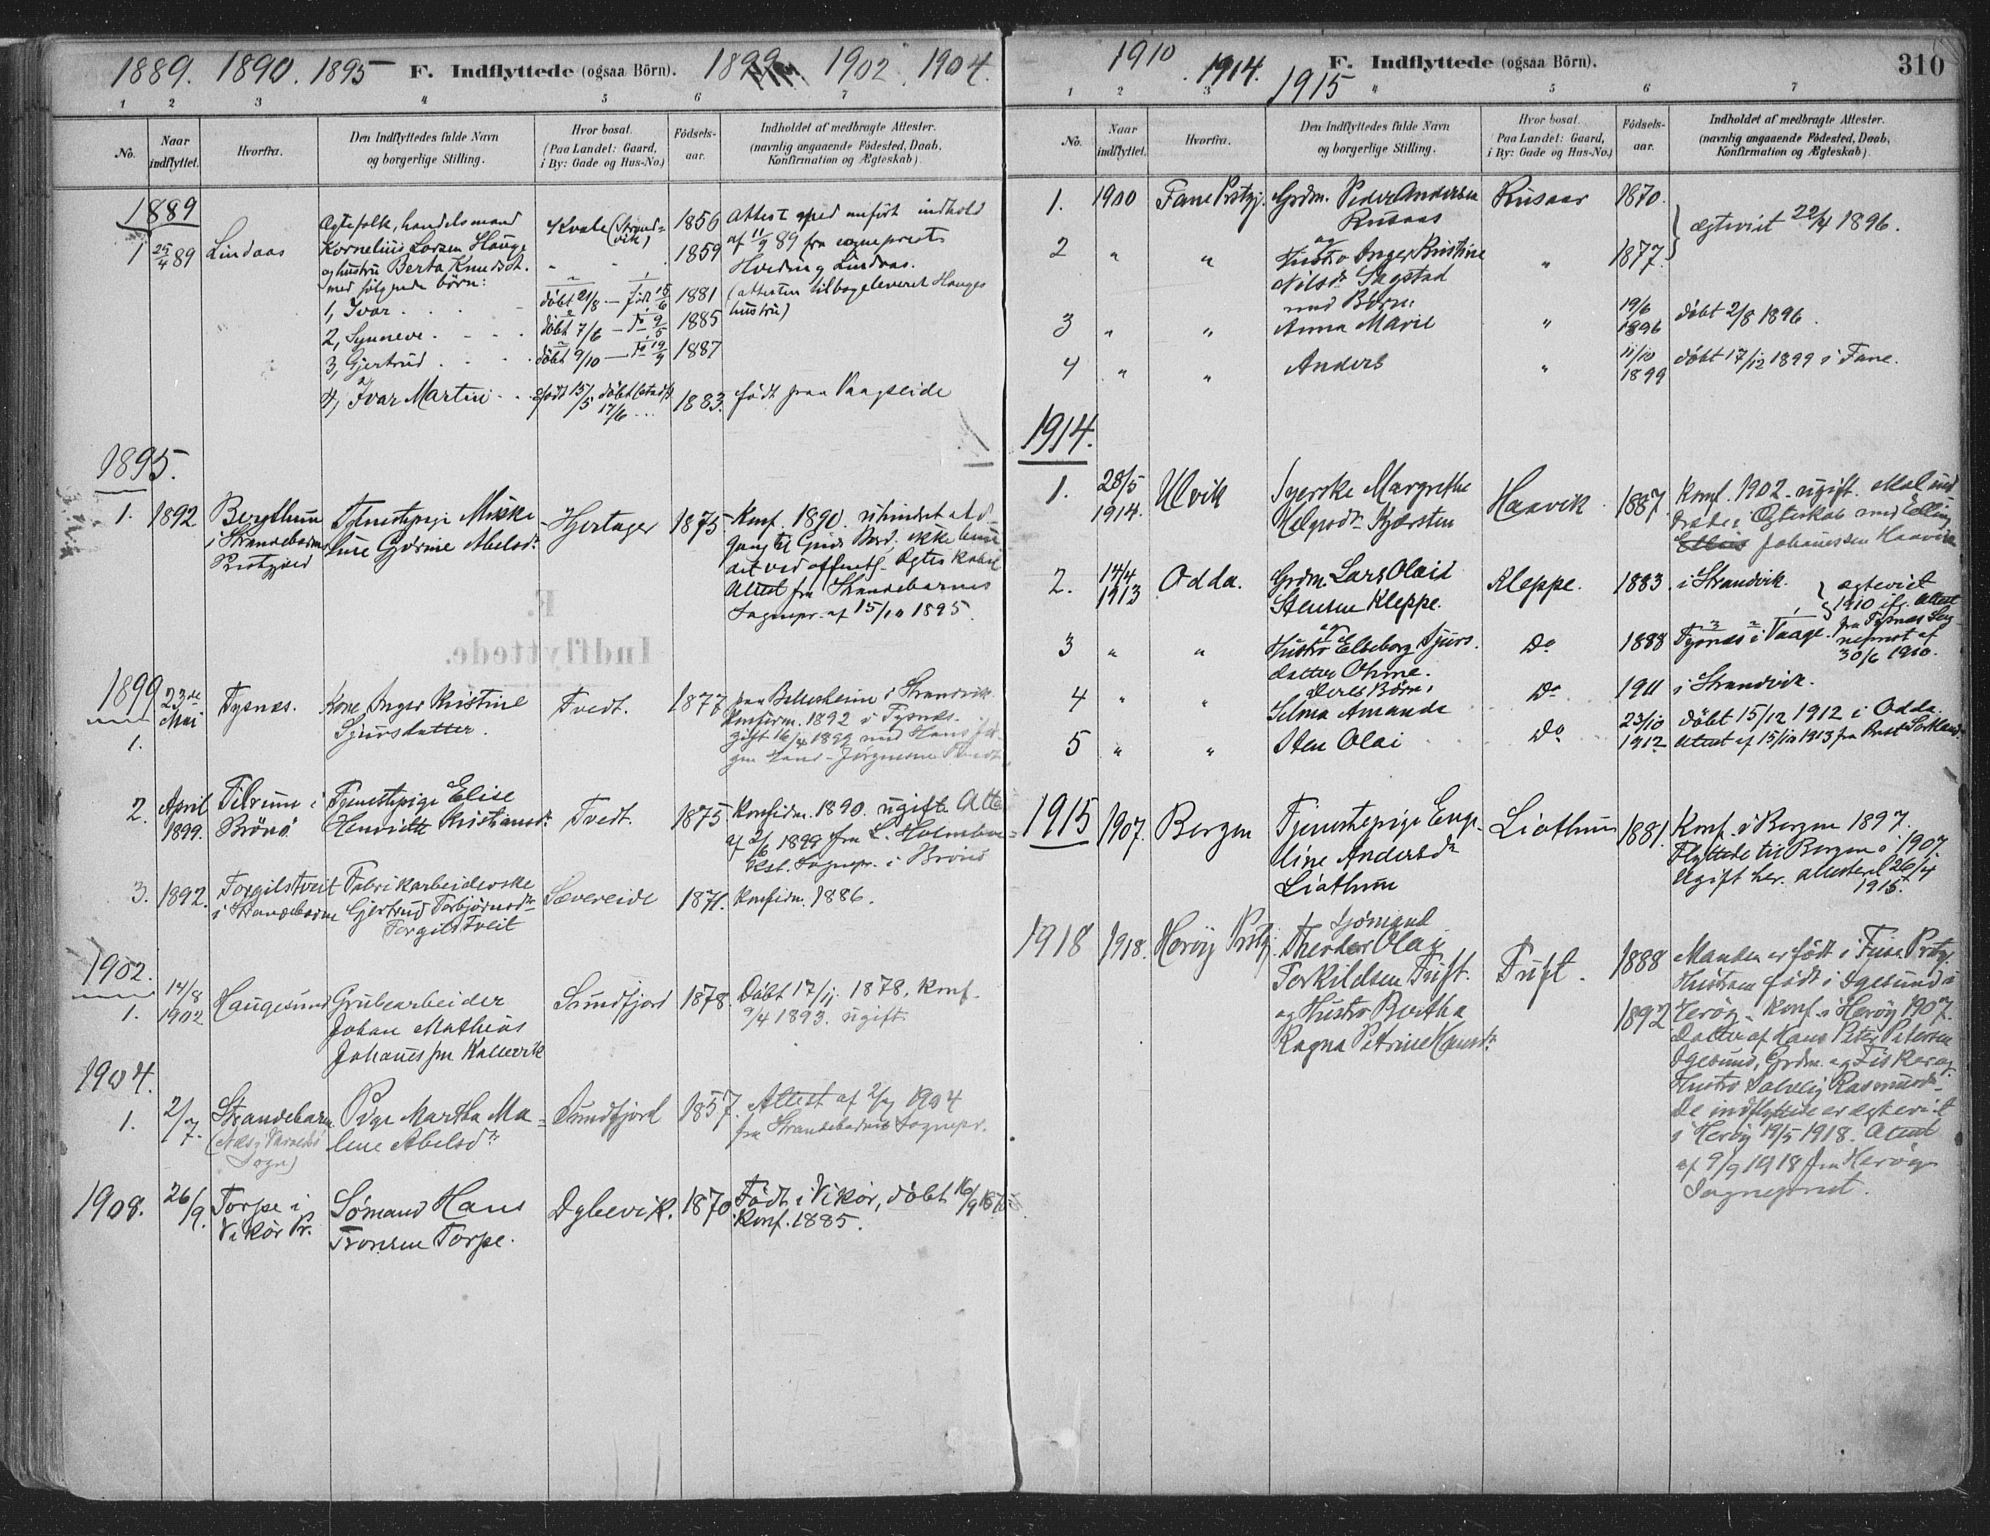 1889. 1890. 1895 F. Indflyttede (ogsaa Börn). 1899 1902 1904.
1 2 3 4 5 6 7
No.
Naar indflyttet.
Hvorfra.
Den Indflyttedes fulde Navn
og borgerlige Stilling.
Hvor bosat.
(Paa Landet: Gaard,
i By: Gade og Hus-No.)
Fødsels-
aar.
Indholdet af medbragte Attester.
(navnlig angaaende Födested, Daab,
Konfirmation og Ægteskab).
1889
1 25/4 89 Lindaas
Ægtefolk, handelsmand
Kornelius Larsen Hauge
og hustru Berta Knudsdt.
med følgende børn:
1, Ivar
2, Synneve
3, Gjertrud
4, Ivar Martin
Kvale (Strand-
vik)
döbt 21/8 — født 15/6
döbt 7/6
döbt 9/10
født 15/5 döbt
17/6
1856
1859
1881
1885
1887
1883.
Attest med anført indhold
af 11/9 89 fra sogneprest
Hveding Lindaas.
(attesten tilbageleveret Hauges
hustru)
født paa Vaagseide
1895.
1. 1892
i Strandebarms
Prstgjeld
Tjenestepige Mikke-
line Gjørine Abelsdr.
Hjertager
1875
Konf. 1890. uhindret Ad-
gang til Guds Bord, ikke bun-
det ved offentl. Ægteskabsl.
Attest fra Strandebarms
Sognepr. af 15/10 1895.
F.
Indflyttede.
1899
1.
23de
Mai
Tysnæs.
Kone Inger Kristine
Sjursdatter.
Tvedt.
1877
paa Bellesheim i Strandvik
Konfirm. 1892 i Tysnæs.
gift 16/4 1899 med Hans
2. April
1899.
i
Brönö
Tjenestepige Elise
Henriette Kristiansdr.
Tvedt.
1875
Konfirm. 1890. ugift. Atte
af 2/6 1899 fra L. Holmboe
Kst. Sognepr. i Brönö
3. 1892.
Torgilstveit
i Strandebarm
Fabrikarbeiderske
Gjertrud Torbjørnsdr
Torgilstveit
Sævereide
1871.
Konfirm. 1886.
1902.
1.
14/8
1902
Haugesund
Grubearbeider
Johan Mathias
Johannessen Kallevik
Sundfjord
1878.
Döbt 17/11 1878, Konf.
9/4 1893. ugift.
1904.
1. 2/7.
Strandebarm
Sogn)
Pige Martha Ma-
lene Abelsdr
Sundfjord
1857.
Attest af 2/7 1904
fra Strandebarms Sognepr.
1908. 26/9.
Torpe i
Vikør Pr.
Sømand Hans
Tronsen Torpe.
Dybevik.
1870
Født i Vikør, döbt 16/9
Konf. 1885.
1910 1914. 1915 F. Indflyttede (ogsaa Börn). 310
1 2 3 4 5 6 7
No.
Naar
indflyttet.
Hvorfra.
Den Indflyttedes fulde Navn
og borgerlige Stilling.
Hvor bosat.
(Paa Landet: Gaard,
i By: Gade og Hus-No.)
Fødsels-
aar.
Indholdet af medbragte Attester.
(navnlig angaaende Födested, Daab,
Konfirmation og Ægteskab).
1. 1900 Fane Prstgj.
Grdm. Peder Andersen
Rusaas
Rusaas
1870.
ægteviet 22/4 1896.
2 " "
og
Hustro Inger Kristine
Nilsdr Sagstad
"
1877.
med Börn:
3 " "
Anna Marie
"
19/6
1896
döbt 2/8 1896.
4 " "
Anders
"
11/10
1899
döbt 17/12 1899 i Fane.
1914.
1. 28/5
1914.
Ulvik
Syerske Margrethe
Kjærsten
Haavik
1887.
Konf. 1902. ugift. Skal ind-
træde i Ægteskab med Elling
Johannessen Haavik
2. 14/4
1913
Odda.
Grdm Lars Olaid
Stensen Kleppe.
Kleppe.
1883
i Strandvik.
ægteviet
1910 ifg. Attest
fra Tysnes Sog-
neprest af
30/6 1910.
3 " "
og
Hustro Elseborg Sjurs-
datter Ohme.
Do
1888
Tysnæs i Vaage.
4 " "
Deres Börn:
Selma Amanda
Do
1911
i Strandvik.
5 " "
Sten Olai
Do
23/10
1912
döbt 15/12 1912 i Odda.
Attest af 15/10 1913 fra Prest
1915
1907.
Bergen
Tjenestepige Enge-
line Andersdr
Liathun
Liathun
1881.
Konf. i Bergen 1897.
Flyttede til Bergen i 1907.
Ugift her. Attesteret 26/4
1915.
1918
1918.
Herøy Prstgj.
Sjømand
Theodor Olai
Torkildsen Tuft.
og Hustro Bertha
Ragna Petrine Hansdr.
Tuft.
1888
1892
Manden er født i Fuse Prstgj.
Hustruen født i Igesund i
Herøy. Konf. i Herøy 1907.
Datter af Hans Peter Petersen
Igesund, Grdm. og Fisker og
Hustro Solveig Rasmusdr.
De indflyttede er ægteviet
i Herøy 19/5 1918. Attest
af 9/9 1918 fra Herøy
Sogneprest.